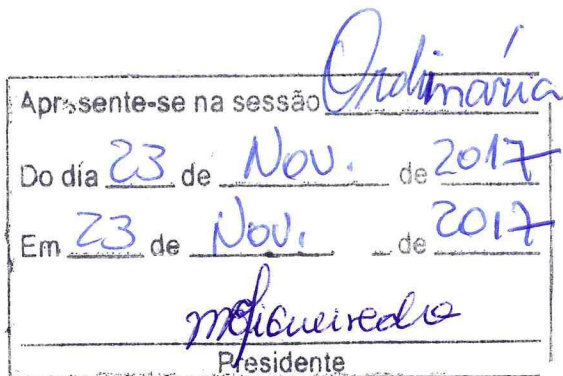 Apresente-se na sessão Ordinária
Do día 23 de Nov. de 2017
Em 23 de Nov. de 2017
mfigueiredo
Presidente